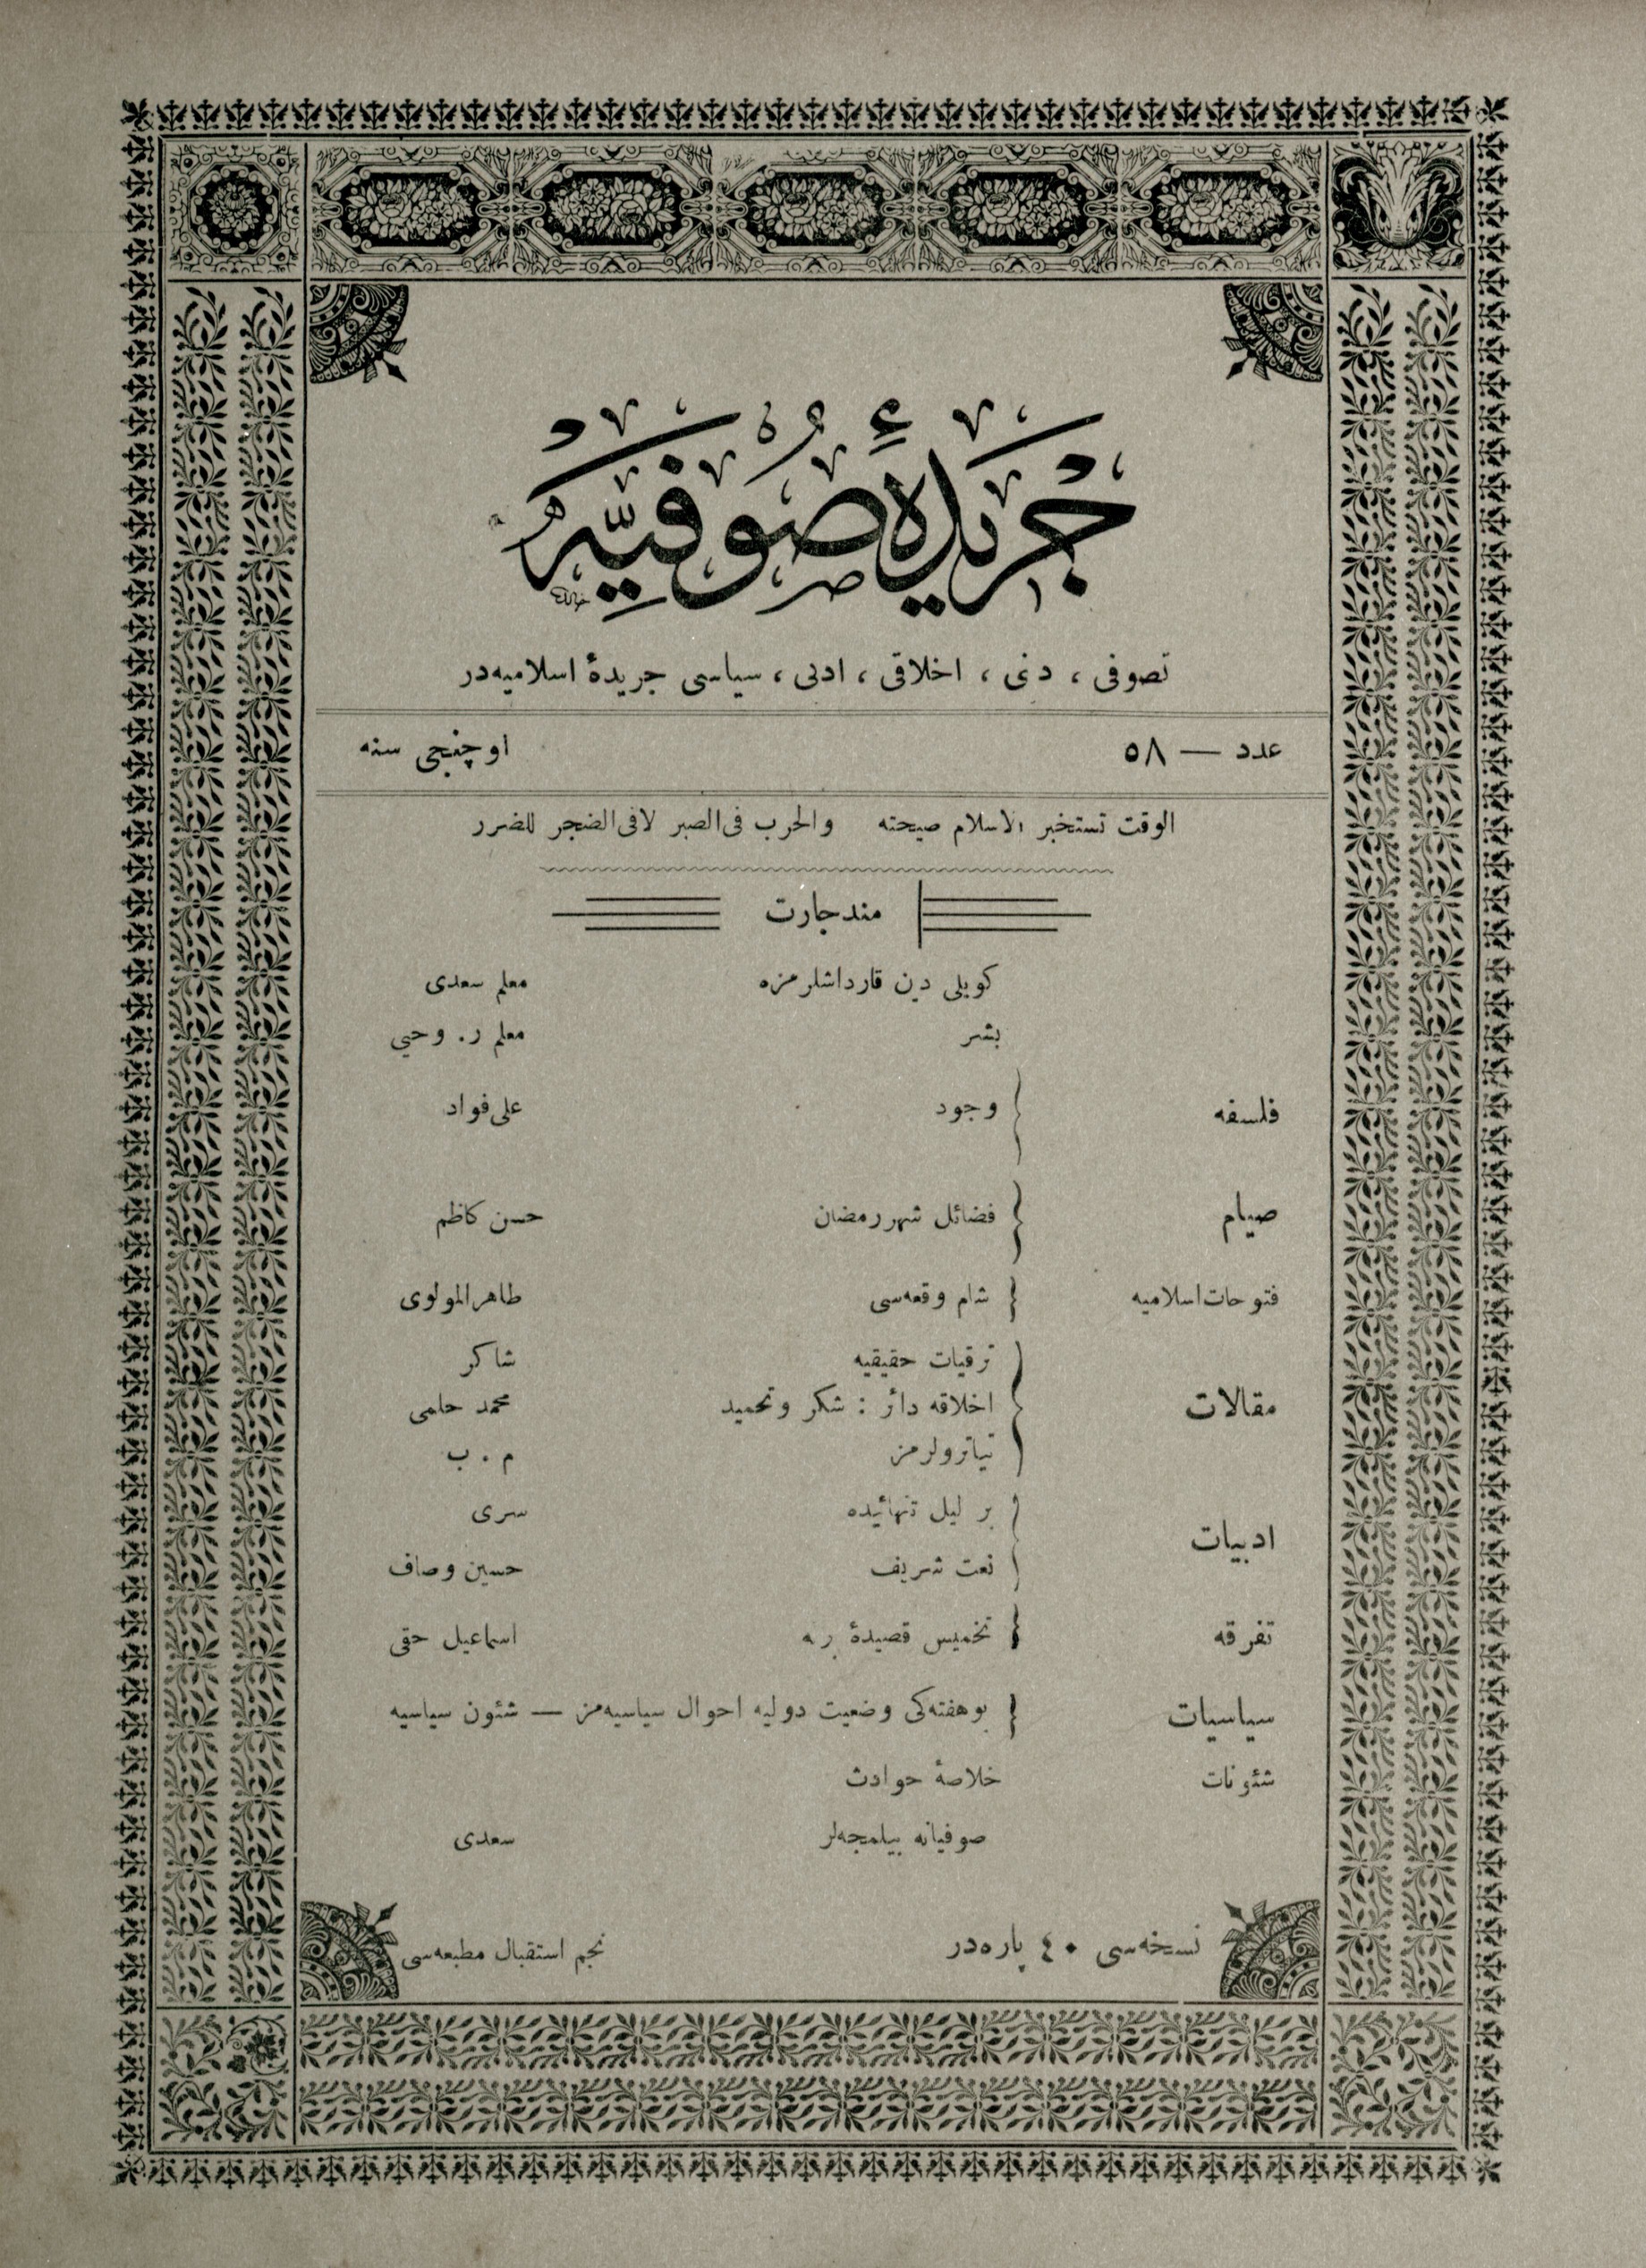 جريدۀ صوفيه
تصوفی ، دنی ، اخلاقی ، ادبی ، سیاسی جریدۀ اسلامیه‌در
عدد — ٥٨ اوچنجی سنه
الوقت تستخبر الاسلام صیحته والحرب فی‌الصبر لافی‌الضجر للضرر
مندجارت
کویلی دین قارداشلرمزه معلم سعدی
بشر معلم ر. وحیی
فلسفه وجود علی‌فواد
صیام فضائل شهررمضان حسن کاظم
فتوحات‌اسلامیه شام وقعه‌سی طاهرالمولوی
ترقیات حقیقیه شاکر
مقالات اخلاقه دائر : شکر وتحمید محمد حلمی
تیاترولرمز م . ب
بر لیل تنهائیده سری
ادبیات
نعت شریف حسین وصاف
تفرقه تخمیس قصیدۀ اسماعیل حقی
سیاسیات بوهفته‌کی وضعیت دولیه احوال سیاسیه‌مز — شئون سیاسیه
شئونات خلاصۀ حوادث
صوفیانه بیلمجه‌لر سعدی
نسخه‌سی ٤٠ پاره‌در نجم استقبال مطبعه‌سی